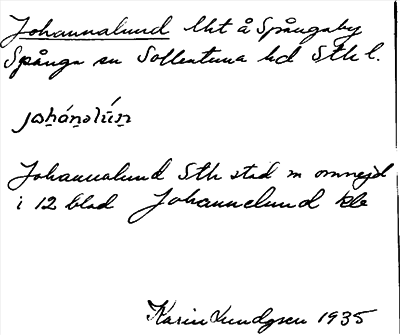 Johannalund lht å Spångaby
Spånga sn Sollentuna hd Sthl.
Johannalund Sth stad m omnejd
i 12 blad Johannelund
Karin Lundgren 1935